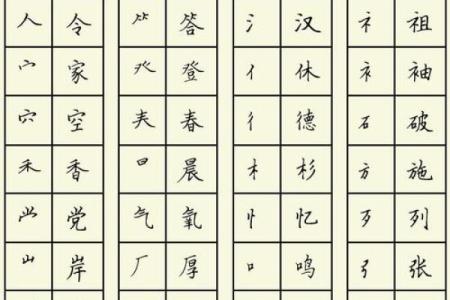 人 令 ⺮ 答 氵 汉 礻 祖
宀 家 癶 登 亻 休 衤 袖
穴 空 𡗗 春 彳 德 石 破
禾 香 日 晨 木 杉 方 施
龸 党 气 氧 忄 忆 歹 列
山 岸 厂 厚 口 鸣 弓 张